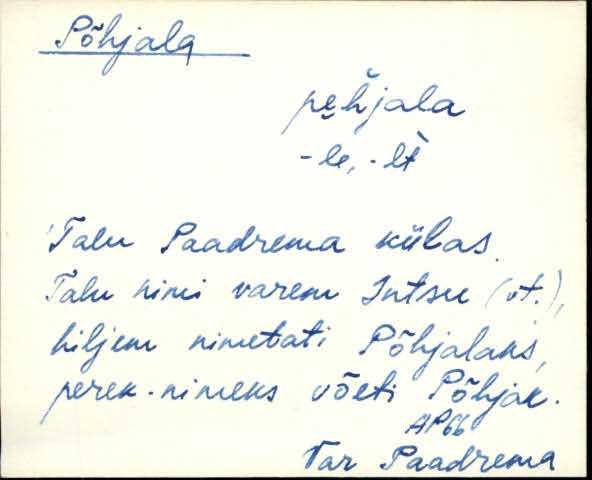 Põhjala
pe̮h̆jala
-le, -lt
Talu Paadrema külas.
Talu nimi varem Intsu (vt.),
hiljem nimetati Põhjalaks,
perek.-nimeks võeti Põhjak.
AP66
Var Paadrema